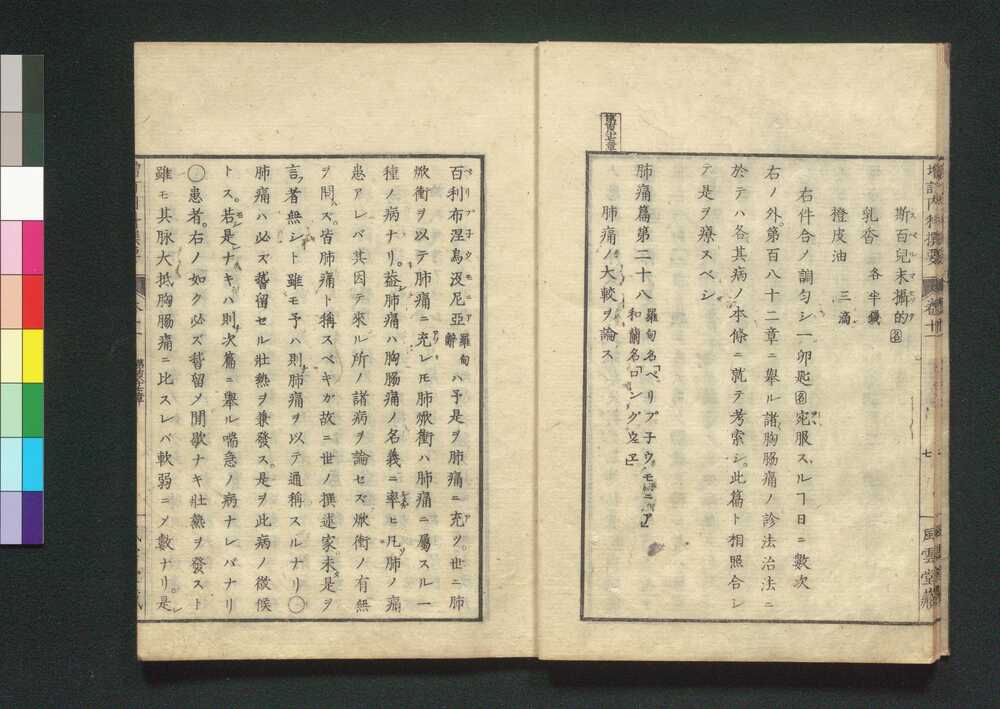 斯百兒末攝的
乳香 各半錢
橙皮油 三滴
右件合ノ調匀シ一卯匙宛服スルヿ日ニ數次
右ノ外第百八十二章ニ舉ル諸胸腸痛ノ診法治法ニ
於テハ各其病ノ本條ニ就テ考索シ此篇ト相照合シ
テ是ヲ療スベシ
肺痛篇第二十八 羅甸名「ペリプ子ウモニア」 和蘭名「ロングヱヱ」
肺痛ノ大較ヲ論ス
百利布涅烏沒尼亞 羅甸辭 ハ予是ヲ肺痛ニ充ツ世ニ肺
焮衝ヲ以テ肺痛ニ充レモ肺焮衝ハ肺痛ニ屬スル一
種ノ病ナリ。蓋肺痛ハ胸腸痛ノ名義ニ率ヒ凡肺ノ痛
患アレバ其因テ來ル所ノ諸病ヲ論セズ焮衝ノ有無
ヲ問ズ。皆肺痛ト稱スベキガ故ニ世ノ撰述家未是ヲ
言フ者無シト雖モ予ハ則肺痛ヲ以テ通稱スルナリ○
肺痛ハ必ズ𥡴留セル壯熱ヲ兼發ス。是ヲ此病ノ徴候
トス。若是ナキハ則次篇ニ舉ル喘急ノ病ナレバナリ
○患者。右ノ如ク必ズ𥡴留ノ間歇ナキ壯熱ヲ發スト
雖モ其脉大抵胸腸痛ニ比スレバ軟弱ニメ數ナリ。是
卷十一
七
風雲堂藏